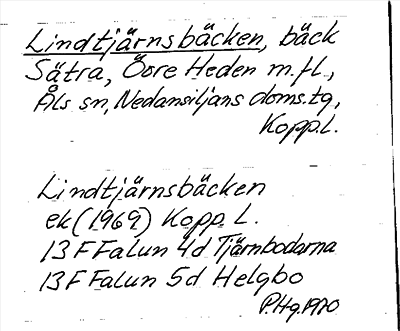 Lindtjärnsbäcken, bäck
Sätra, Övre Heden m.fl.,
Åls sn, Nedansiljans doms.tg,
Kopp.L.
Lindtjärnsbäcken
ek (1969) Kopp L.
13 F Falun 4d Tjärnbodarna
13 F Falun 5d Helgbo
P.Hg.1970